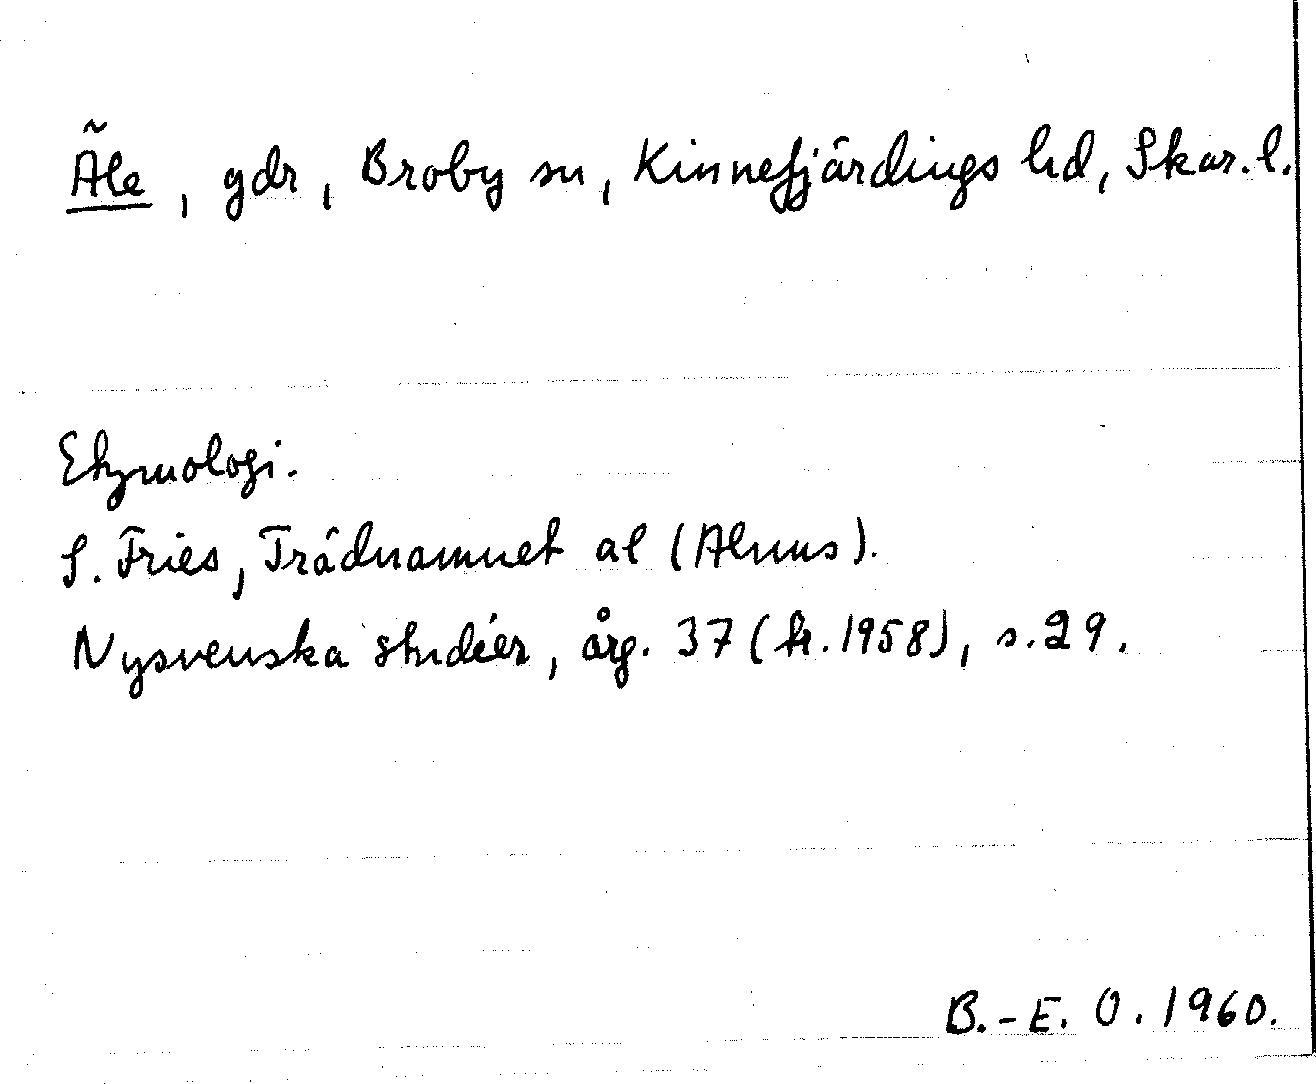 Äle, gdr, Broby sn, Kinnefjärdings hd, Skar. l.
Etymologi.
S. Fries, Trädnamnet al (Alnus).
Nysvenska studier, årg. 37 (tr. 1958), s. 29.
B.-E. O. 1960.